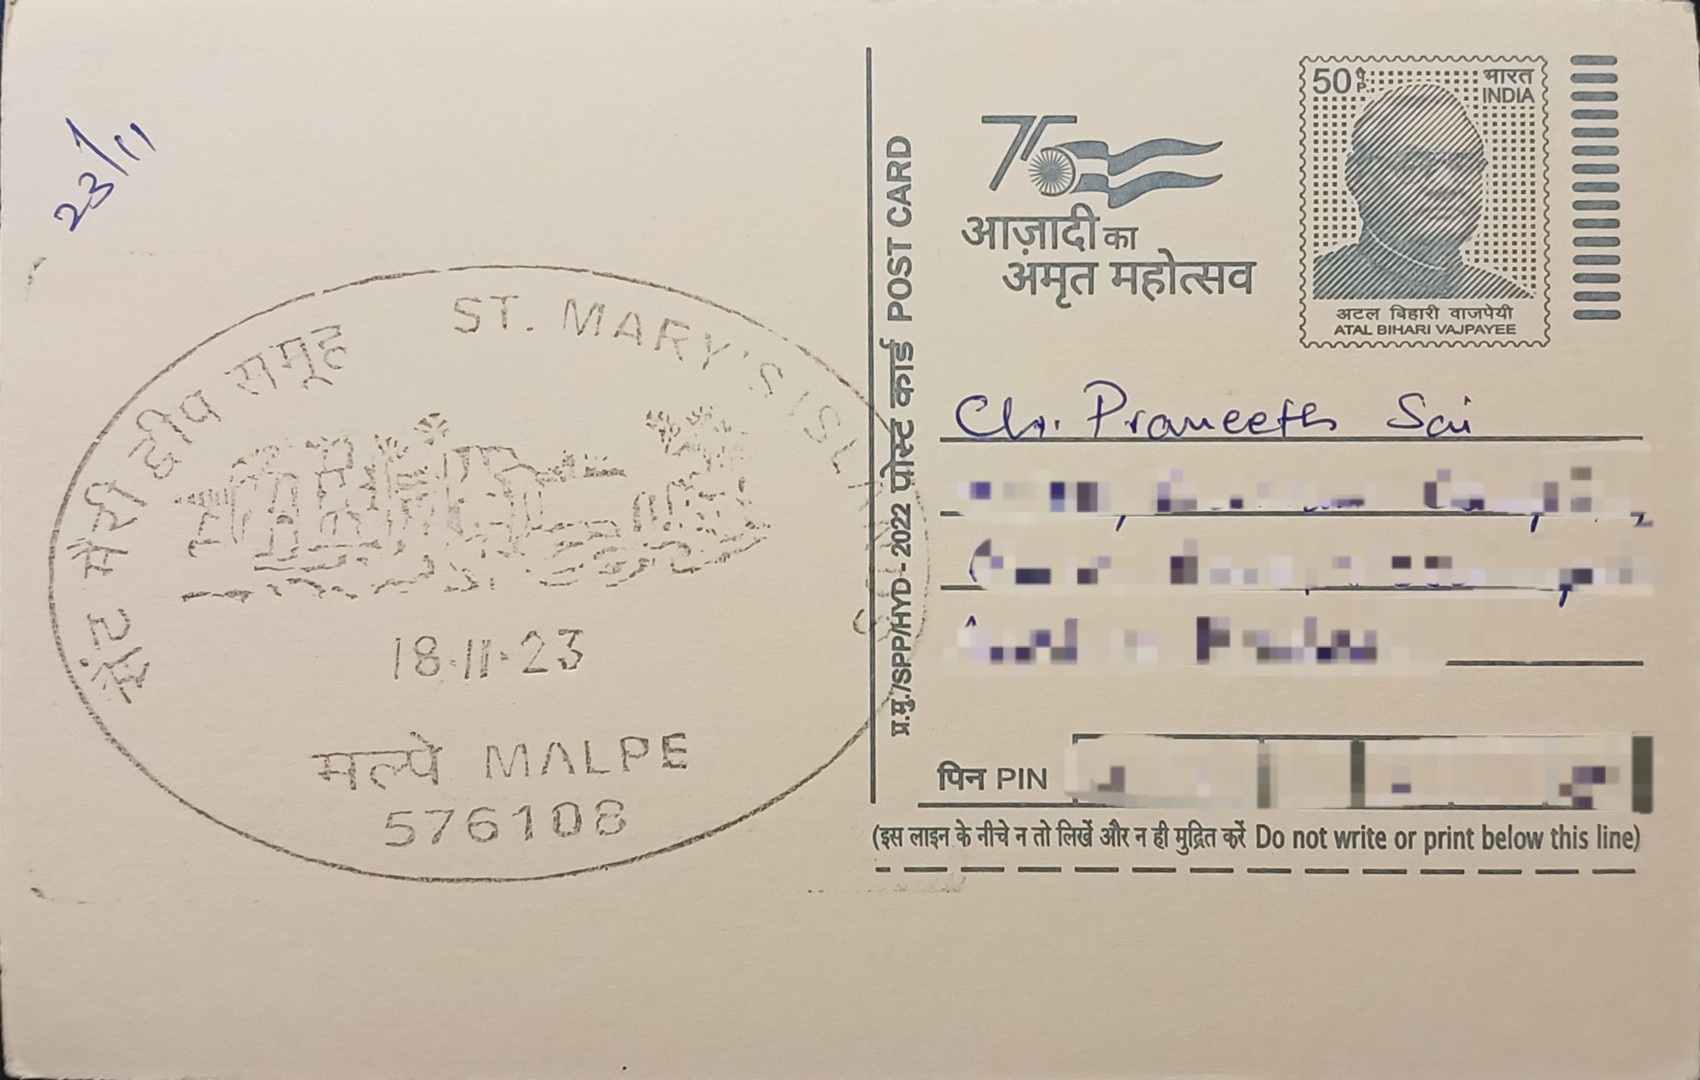 23/11
सेंट मेरी द्वीप समूह ST. MARY'S ISL
18.11.23
मल्पे MALPE
576108
प्र.मु./SPP/HYD-2022 पोस्ट कार्ड POST CARD
75
आज़ादी का
अमृत महोत्सव
50 P. भारत
INDIA
अटल बिहारी वाजपेयी
ATAL BIHARI VAJPAYEE
Ch. Praneeth Sai
पिन PIN
(इस लाइन के नीचे न तो लिखें और न ही मुद्रित करें Do not write or print below this line)